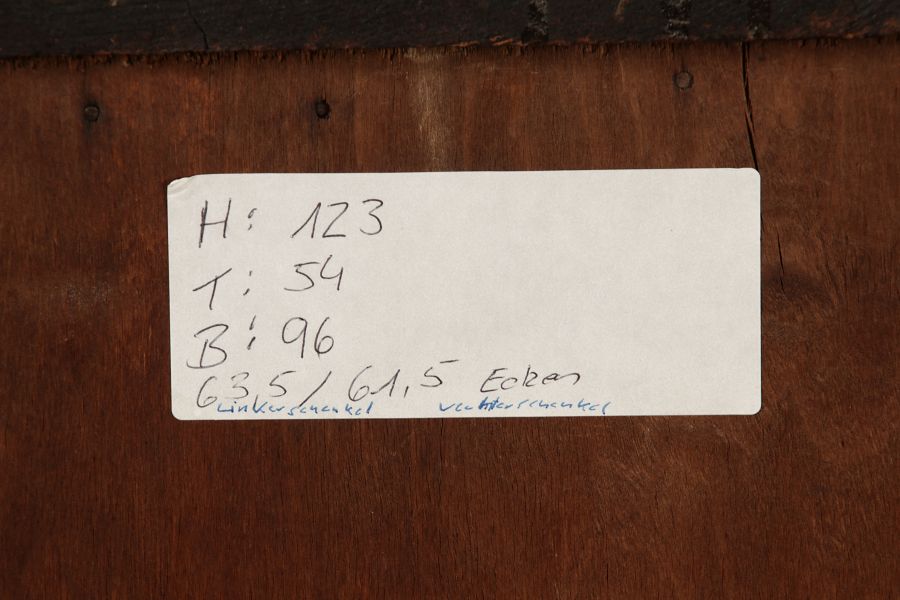 H: 123
T: 54
B: 96
63,5 / 61,5 Ecken
linkerschenkel rechterschenkel